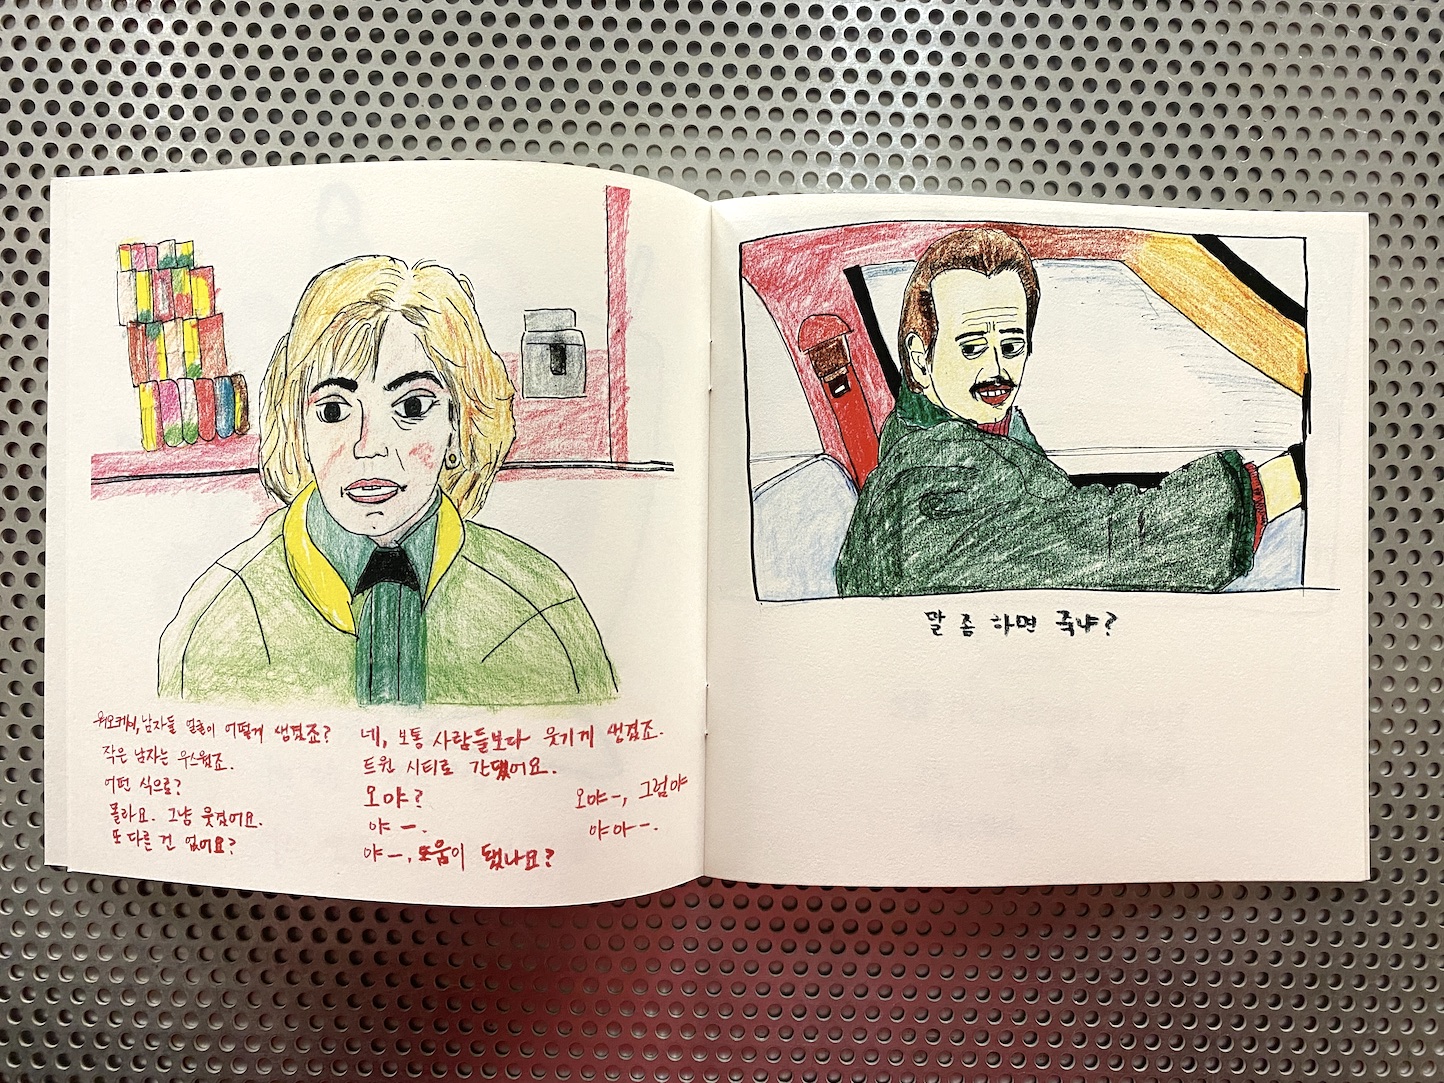 워오케이, 남자들 얼굴이 어떻게 생겼죠?
작은 남자는 우스웠죠.
어떤 식으로?
몰라요. 그냥 웃겼어요.
또 다른 건 없어요?
네, 보통 사람들보다 웃기게 생겼죠.
트윈 시티로 간댔어요.
오야?
야-.
야-, 도움이 됐나요?
오야-, 그럼야
야아-.
말 좀 하면 죽냐?